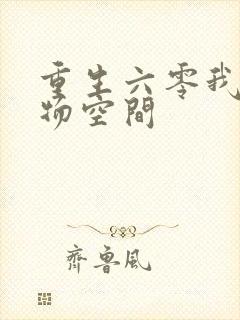 重生六零我
物空間
齊魯風